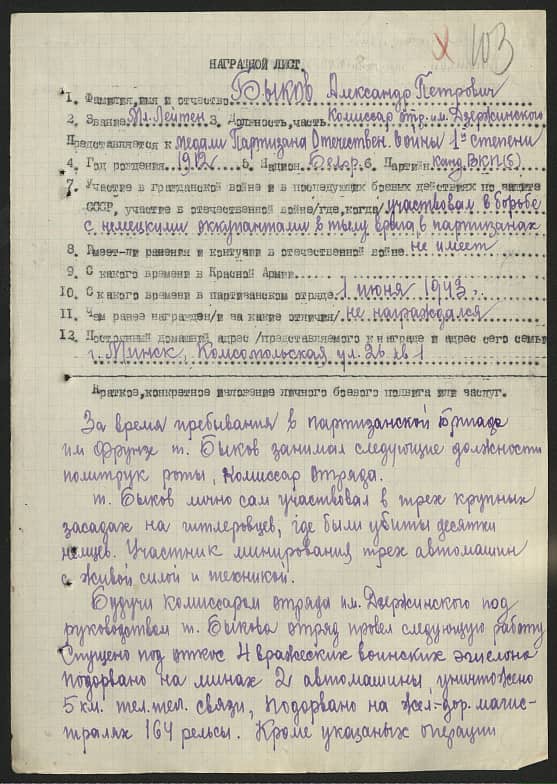 103
НАГРАДНОЙ ЛИСТ.
1. Фамилия, имя и отчество Быков Александр Петрович
2. Звание Мл. Лейтен 3. Должность, часть Комиссар отр. им. Дзержинского
Представляется к медали Партизана Отечествен. войны 1й степени
4. Год рождения 1912 5. Национ. Белор. 6. Партийн. канд. ВКП(б)
7. Участие в гражданской войне и в последующих боевых действиях по защите
СССР, участие в отечественной войне/где, когда участвовал в борьбе
с немецкими оккупантами в тылу врага, в партизанах
8. Имеет-ли ранения и контузии в отечественной войне не имеет
9. С какого времени в Красной Армии
10. С какого времени в партизанском отряде 1 июня 1943 г.
11. Чем ранее награжден/и за какие отличия/ не награждался
12. Постоянный домашний адрес /представляемого к награде и адрес его семьи
г. Минск, Комсомольская ул. 26 кв 1
Краткое, конкретное изложение личного боевого подвига или заслуг.
За время пребывания в партизанской бригаде
им Фрунзе т. Быков занимал следующие должности
политрук роты, комиссар отряда.
т. Быков лично сам участвовал в трех крупных
засадах на гитлеровцев, где были убиты десятки
немцев. Участник минирования трех автомашин
с живой силой и техникой.
Будучи комиссаром отряда им. Дзержинского под
руководством т. Быкова отряд провел следующую работу
Спущено под откос 4 вражеских воинских эшелона
подорвано на минах 2 автомашины, уничтожено
5 км. тел. тел. связи, подорвано на жел-дор. магис-
тралях 164 рельсы. Кроме указаных операции